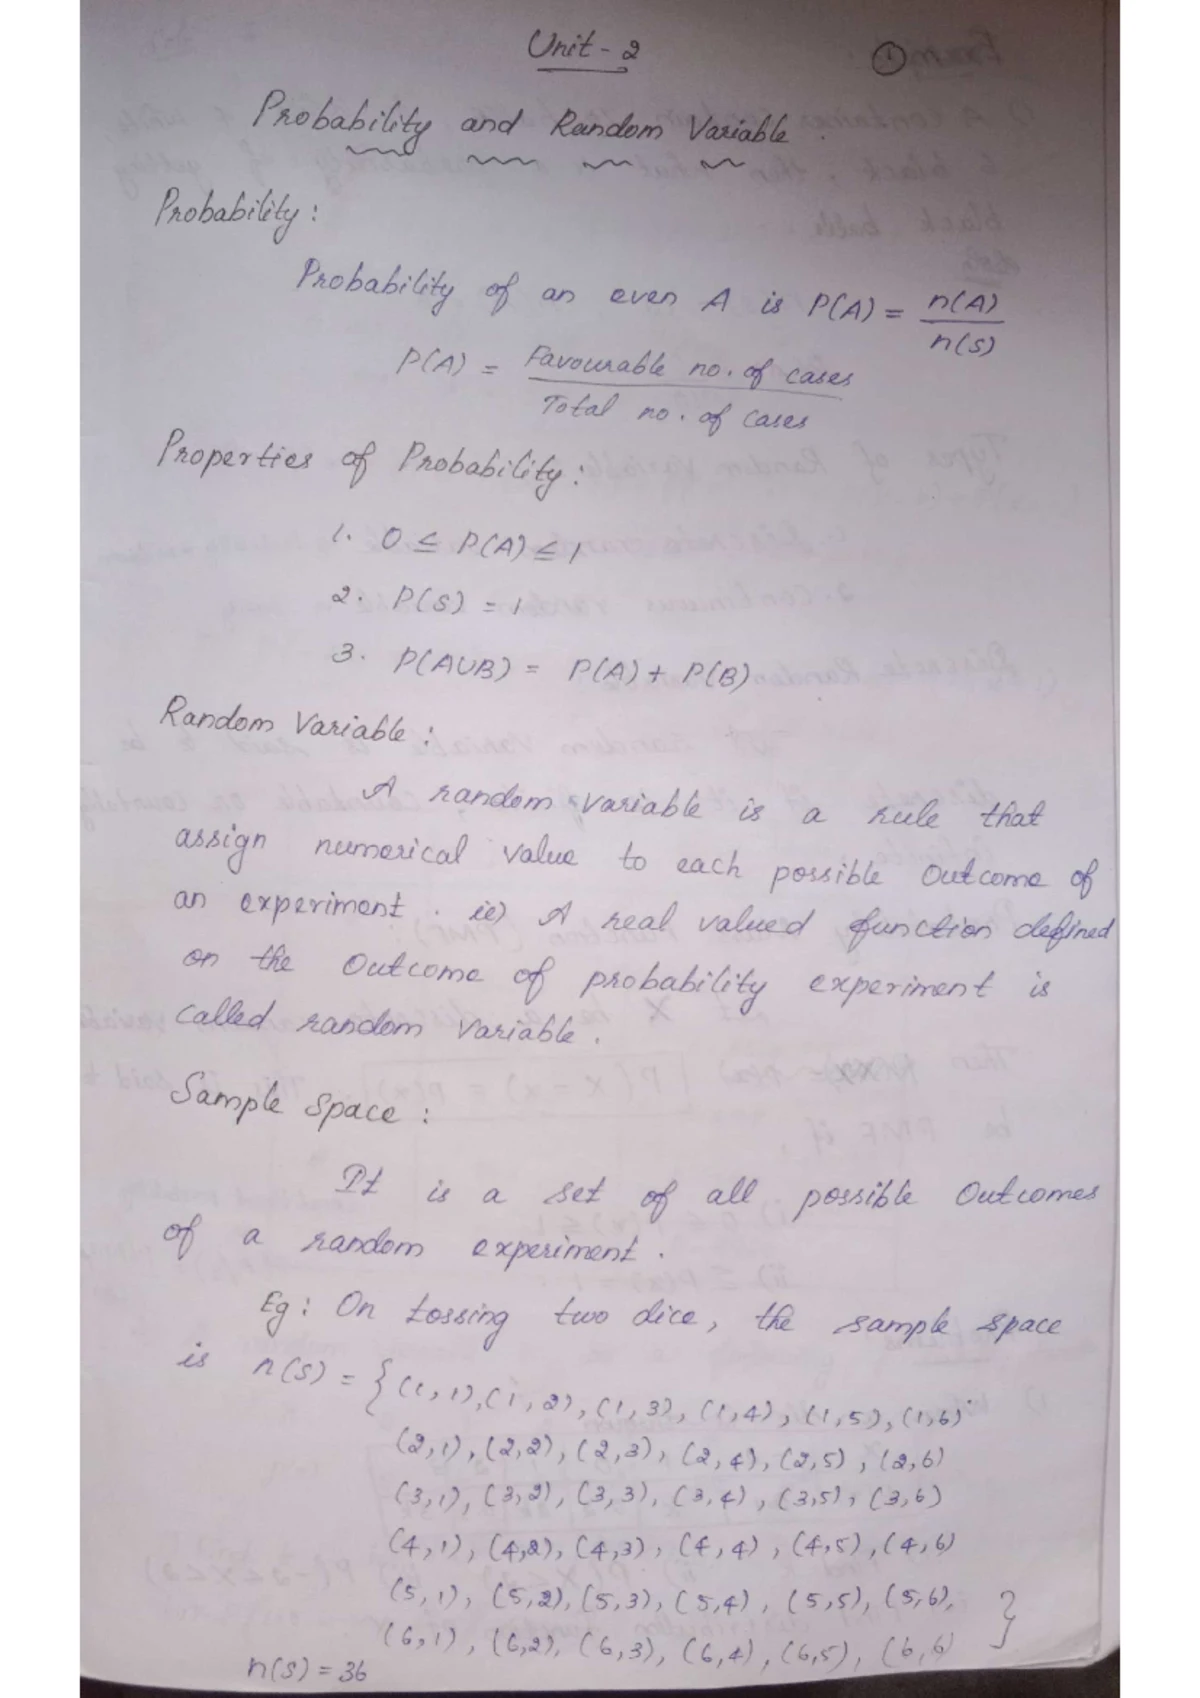 Unit - 2
1
Probability and Random Variable.
Probability:
Probability of an even A is P(A) = n(A)/n(S)
P(A) = Favourable no. of cases / Total no. of cases
Properties of Probability:
1. 0 ≤ P(A) ≤ 1
2. P(S) = 1
3. P(AUB) = P(A) + P(B)
Random Variable:
A random variable is a rule that
assign numerical value to each possible outcome of
an experiment. ie) A real valued function defined
on the outcome of probability experiment is
called random variable.
Sample space:
It is a set of all possible outcomes
of a random experiment.
Eg: On tossing two dice, the sample space
is n(S) = {(1,1),(1,2),(1,3),(1,4),(1,5),(1,6)
(2,1),(2,2),(2,3),(2,4),(2,5),(2,6)
(3,1),(3,2),(3,3),(3,4),(3,5),(3,6)
(4,1),(4,2),(4,3),(4,4),(4,5),(4,6)
(5,1),(5,2),(5,3),(5,4),(5,5),(5,6),
(6,1),(6,2),(6,3),(6,4),(6,5),(6,6) }
n(S) = 36